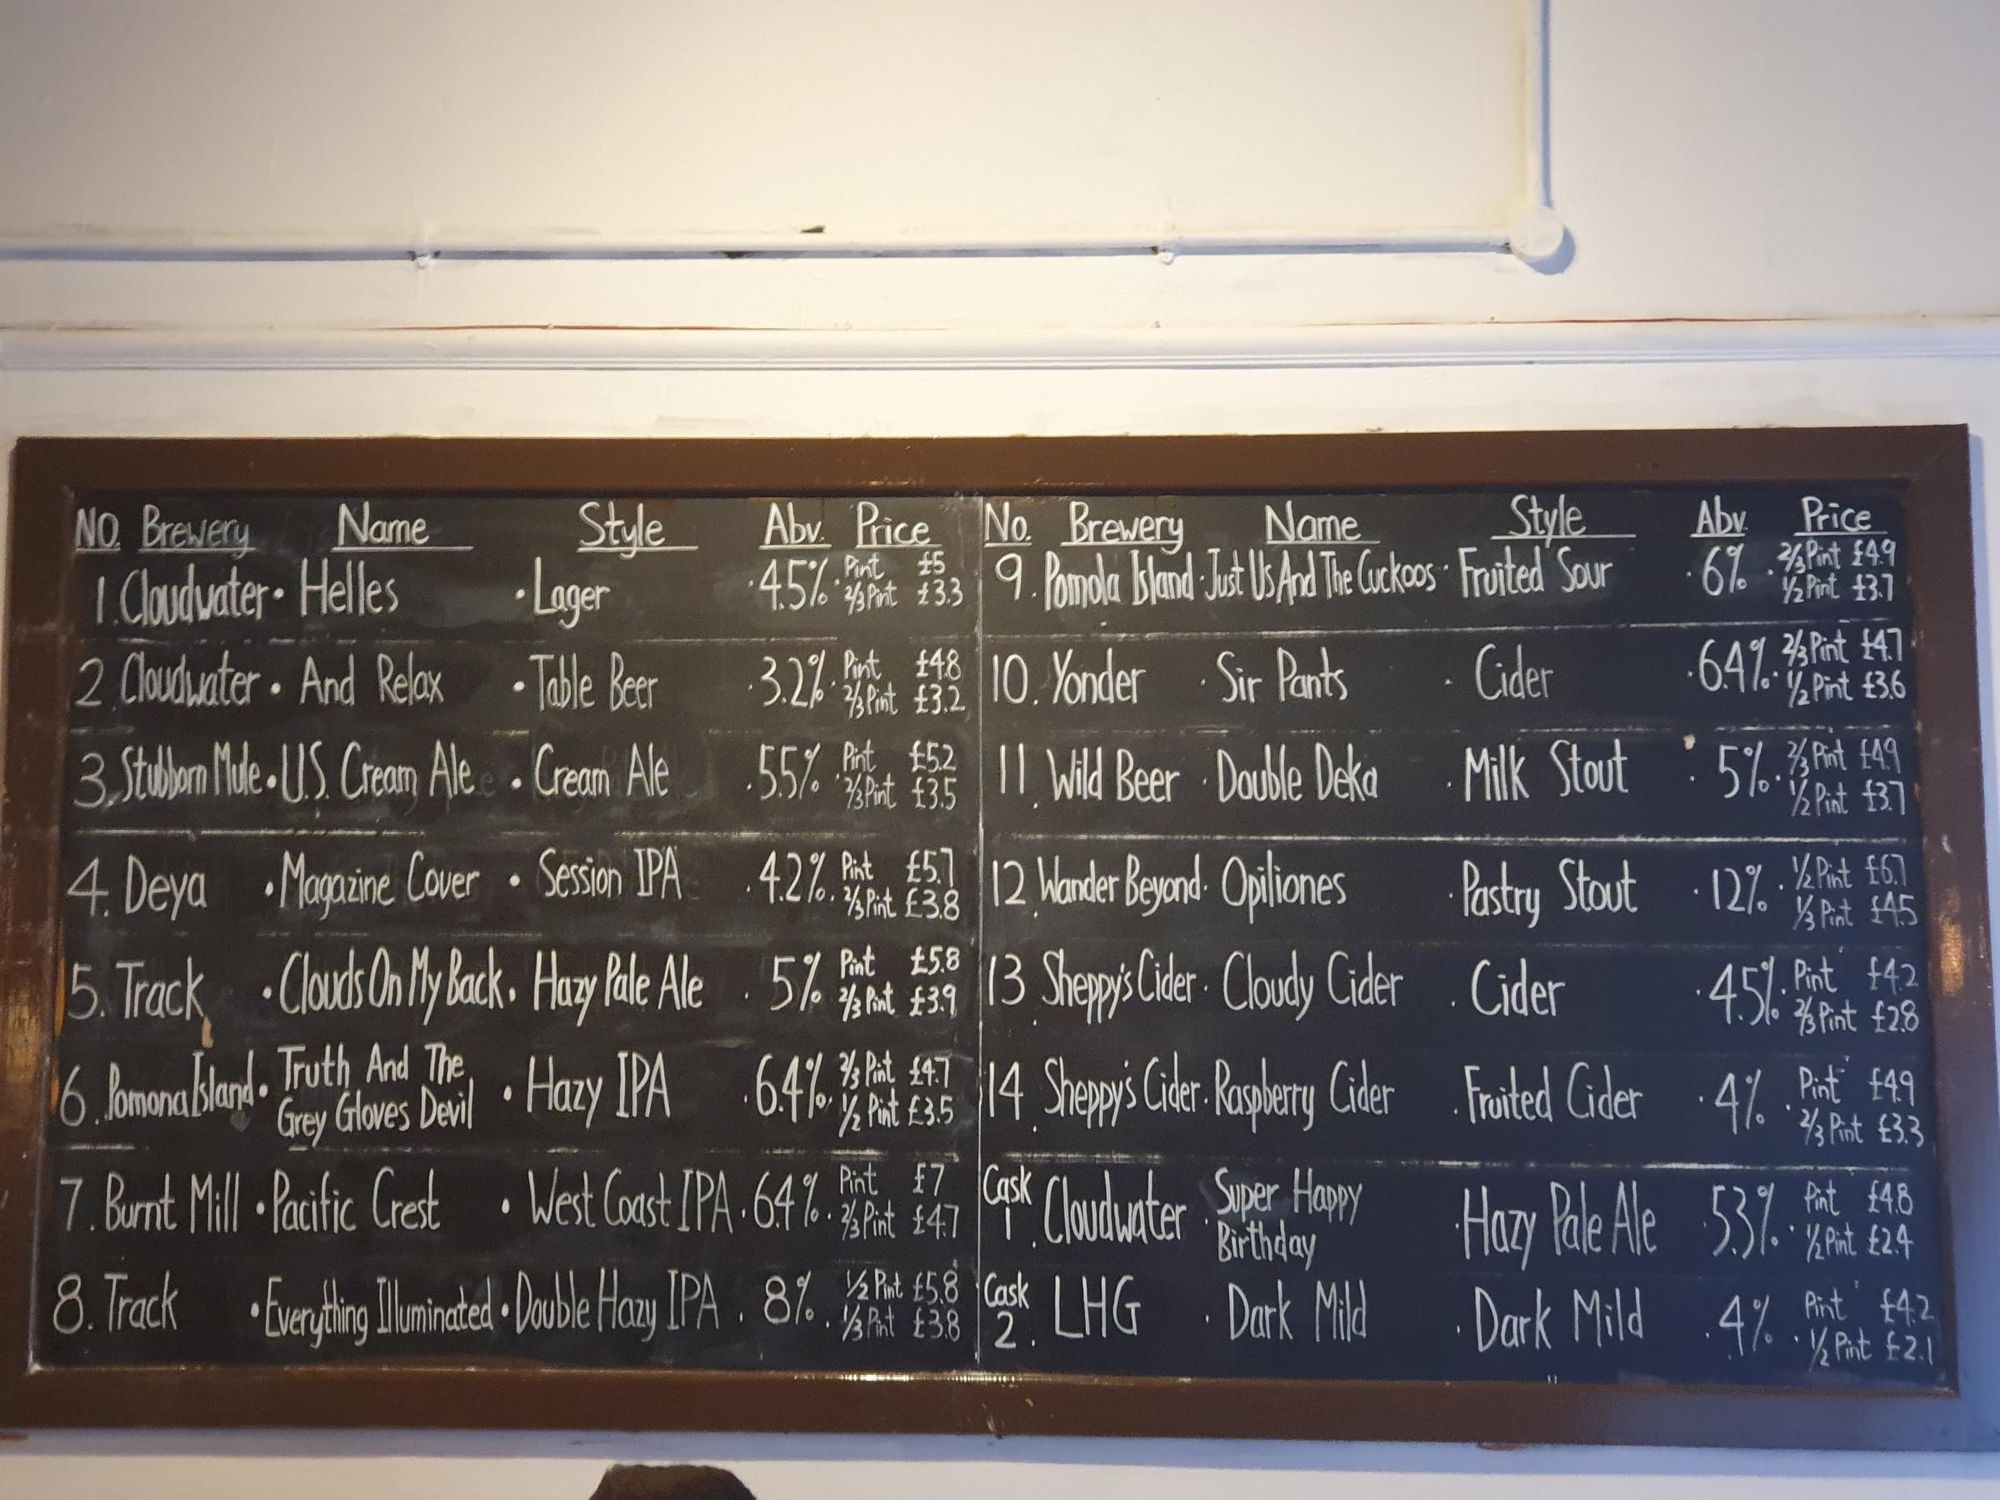 NO. Brewery Name Style Abv. Price
1. Cloudwater · Helles · Lager · 4.5% · Pint £5
2/3 Pint £3.3
2. Cloudwater · And Relax · Table Beer · 3.2% · Pint £4.8
2/3 Pint £3.2
3. Stubborn Mule · U.S. Cream Ale · Cream Ale · 5.5% · Pint £5.2
2/3 Pint £3.5
4. Deya · Magazine Cover · Session IPA · 4.2% · Pint £5.7
2/3 Pint £3.8
5. Track · Clouds On My Back · Hazy Pale Ale · 5% · Pint £5.8
2/3 Pint £3.9
6. Pomona Island · Truth And The
Grey Gloves Devil · Hazy IPA · 6.4% · 2/3 Pint £4.7
1/2 Pint £3.5
7. Burnt Mill · Pacific Crest · West Coast IPA · 6.4% · Pint £7
2/3 Pint £4.7
8. Track · Everything Illuminated · Double Hazy IPA · 8% · 1/2 Pint £5.8
1/3 Pint £3.8
No. Brewery Name Style Abv. Price
9. Pomola Island · Just Us And The Cuckoos · Fruited Sour · 6% · 2/3 Pint £4.9
1/2 Pint £3.7
10. Yonder · Sir Pants · Cider · 6.4% · 2/3 Pint £4.7
1/2 Pint £3.6
11. Wild Beer · Double Deka · Milk Stout · 5% · 2/3 Pint £4.9
1/2 Pint £3.7
12. Wander Beyond · Opiliones · Pastry Stout · 12% · 1/2 Pint £6.7
1/3 Pint £4.5
13. Sheppy's Cider · Cloudy Cider · Cider · 4.5% · Pint £4.2
2/3 Pint £2.8
14. Sheppy's Cider · Raspberry Cider · Fruited Cider · 4% · Pint £4.9
2/3 Pint £3.3
Cask
1. Cloudwater · Super Happy
Birthday · Hazy Pale Ale · 5.3% · Pint £4.8
1/2 Pint £2.4
Cask
2. LHG · Dark Mild · Dark Mild · 4% · Pint £4.2
1/2 Pint £2.1